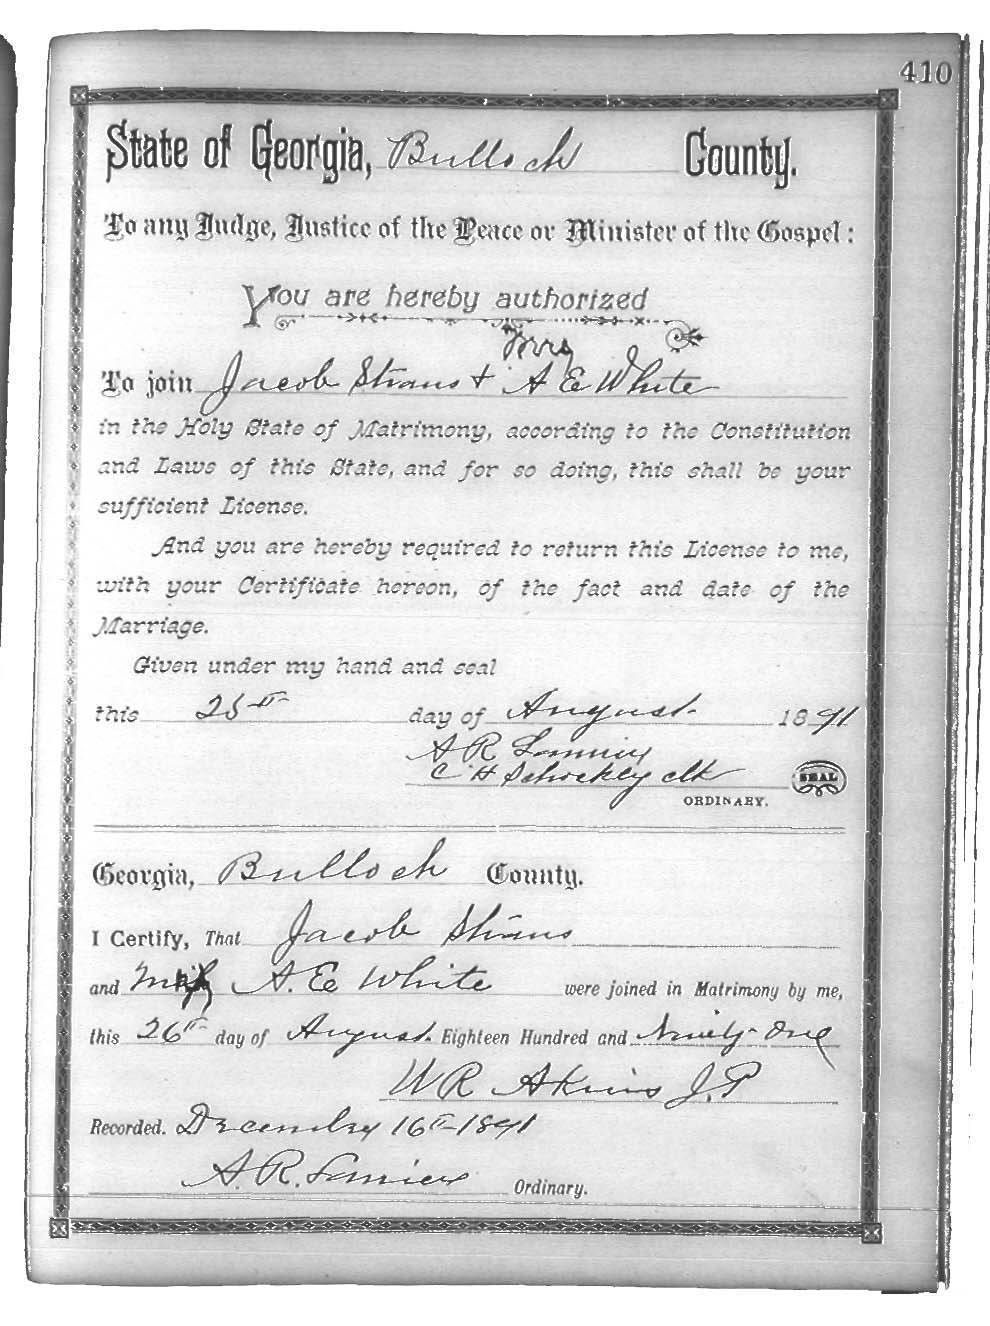 410
State of Georgia, Bulloch County.
To any Judge, Justice of the Peace or Minister of the Gospel:
You are hereby authorized
Mrs
To join Jacob Straus + A E White
in the Holy State of Matrimony, according to the Constitution
and Laws of this State, and for so doing, this shall be your
sufficient License.
And you are hereby required to return this License to me,
with your Certificate hereon, of the fact and date of the
Marriage.
Given under my hand and seal
this 25th day of August 1891
A R Lanier
C H Shockley clk
SEAL
ORDINARY.
Georgia, Bulloch County.
I Certify, That Jacob Straus
and A. E White were joined in Matrimony by me,
this 26th day of August Eighteen Hundred and Ninety One
W R Akins J.P
Recorded. December 16th 1891
A. R. Lanier Ordinary.